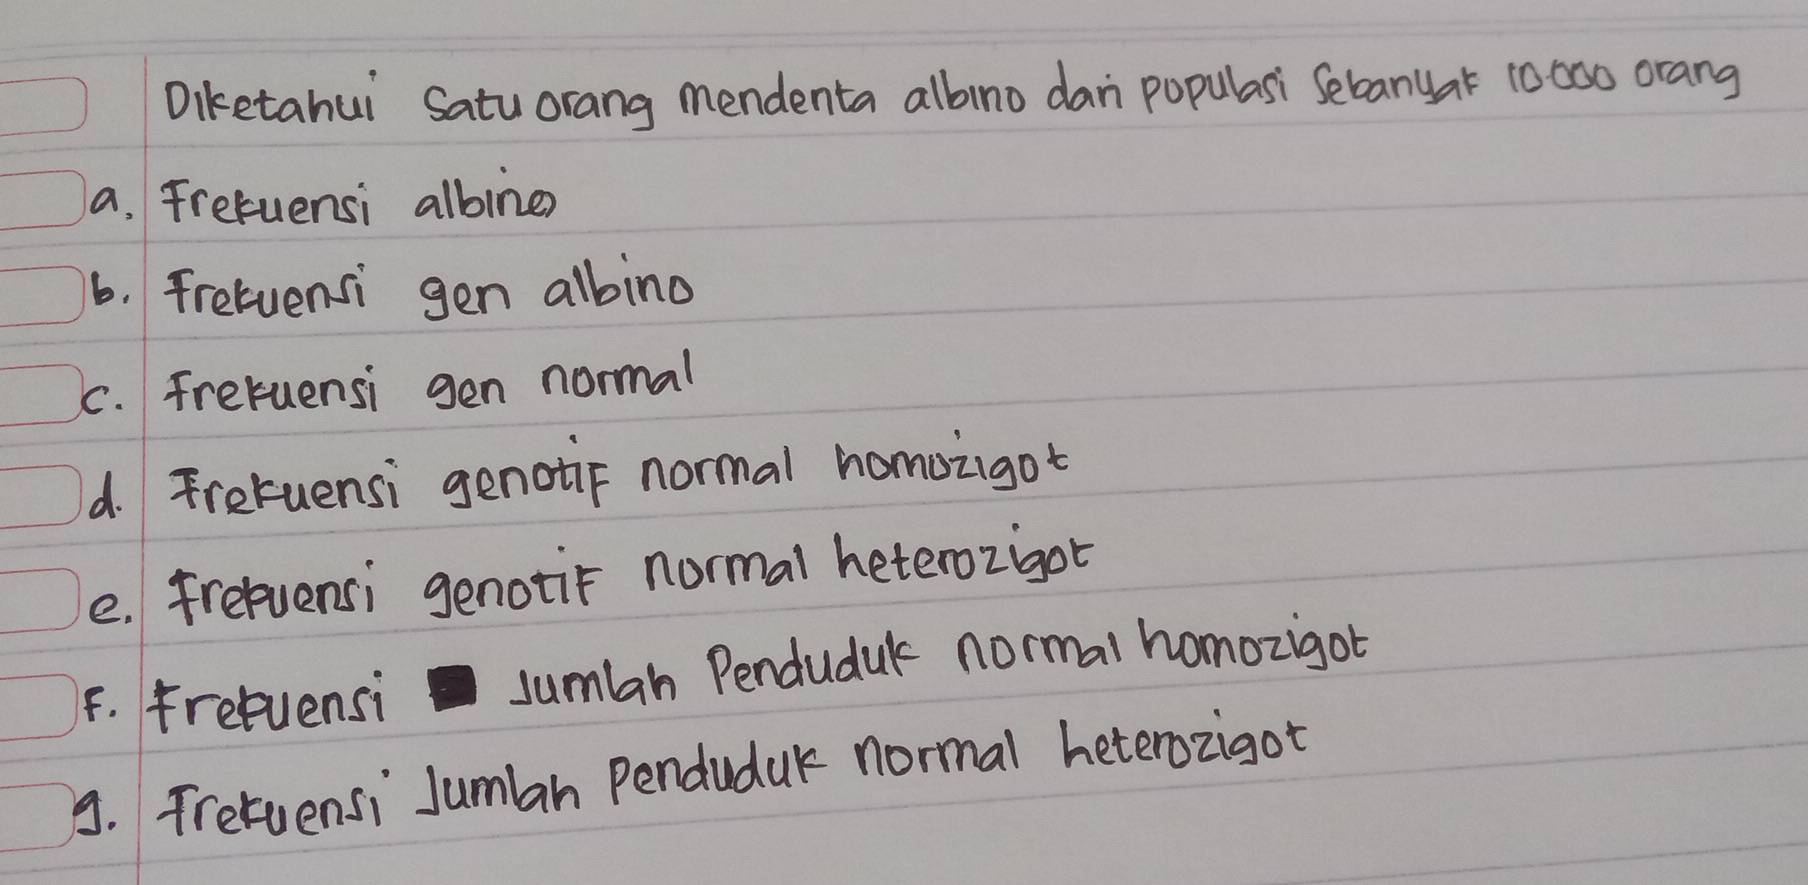 Diketahui satu orang menderita albino dari populasi sebanyak 10.000 orang
a. Frekuensi albino
b. Frekuensi gen albino
c. Frekuensi gen normal
d. Frekuensi genotif normal homozigot
e. Frekuensi genotif normal heterozigot
F. Frekuensi Jumlah Penduduk normal homozigot
g. Frekuensi Jumlah Penduduk normal heterozigot